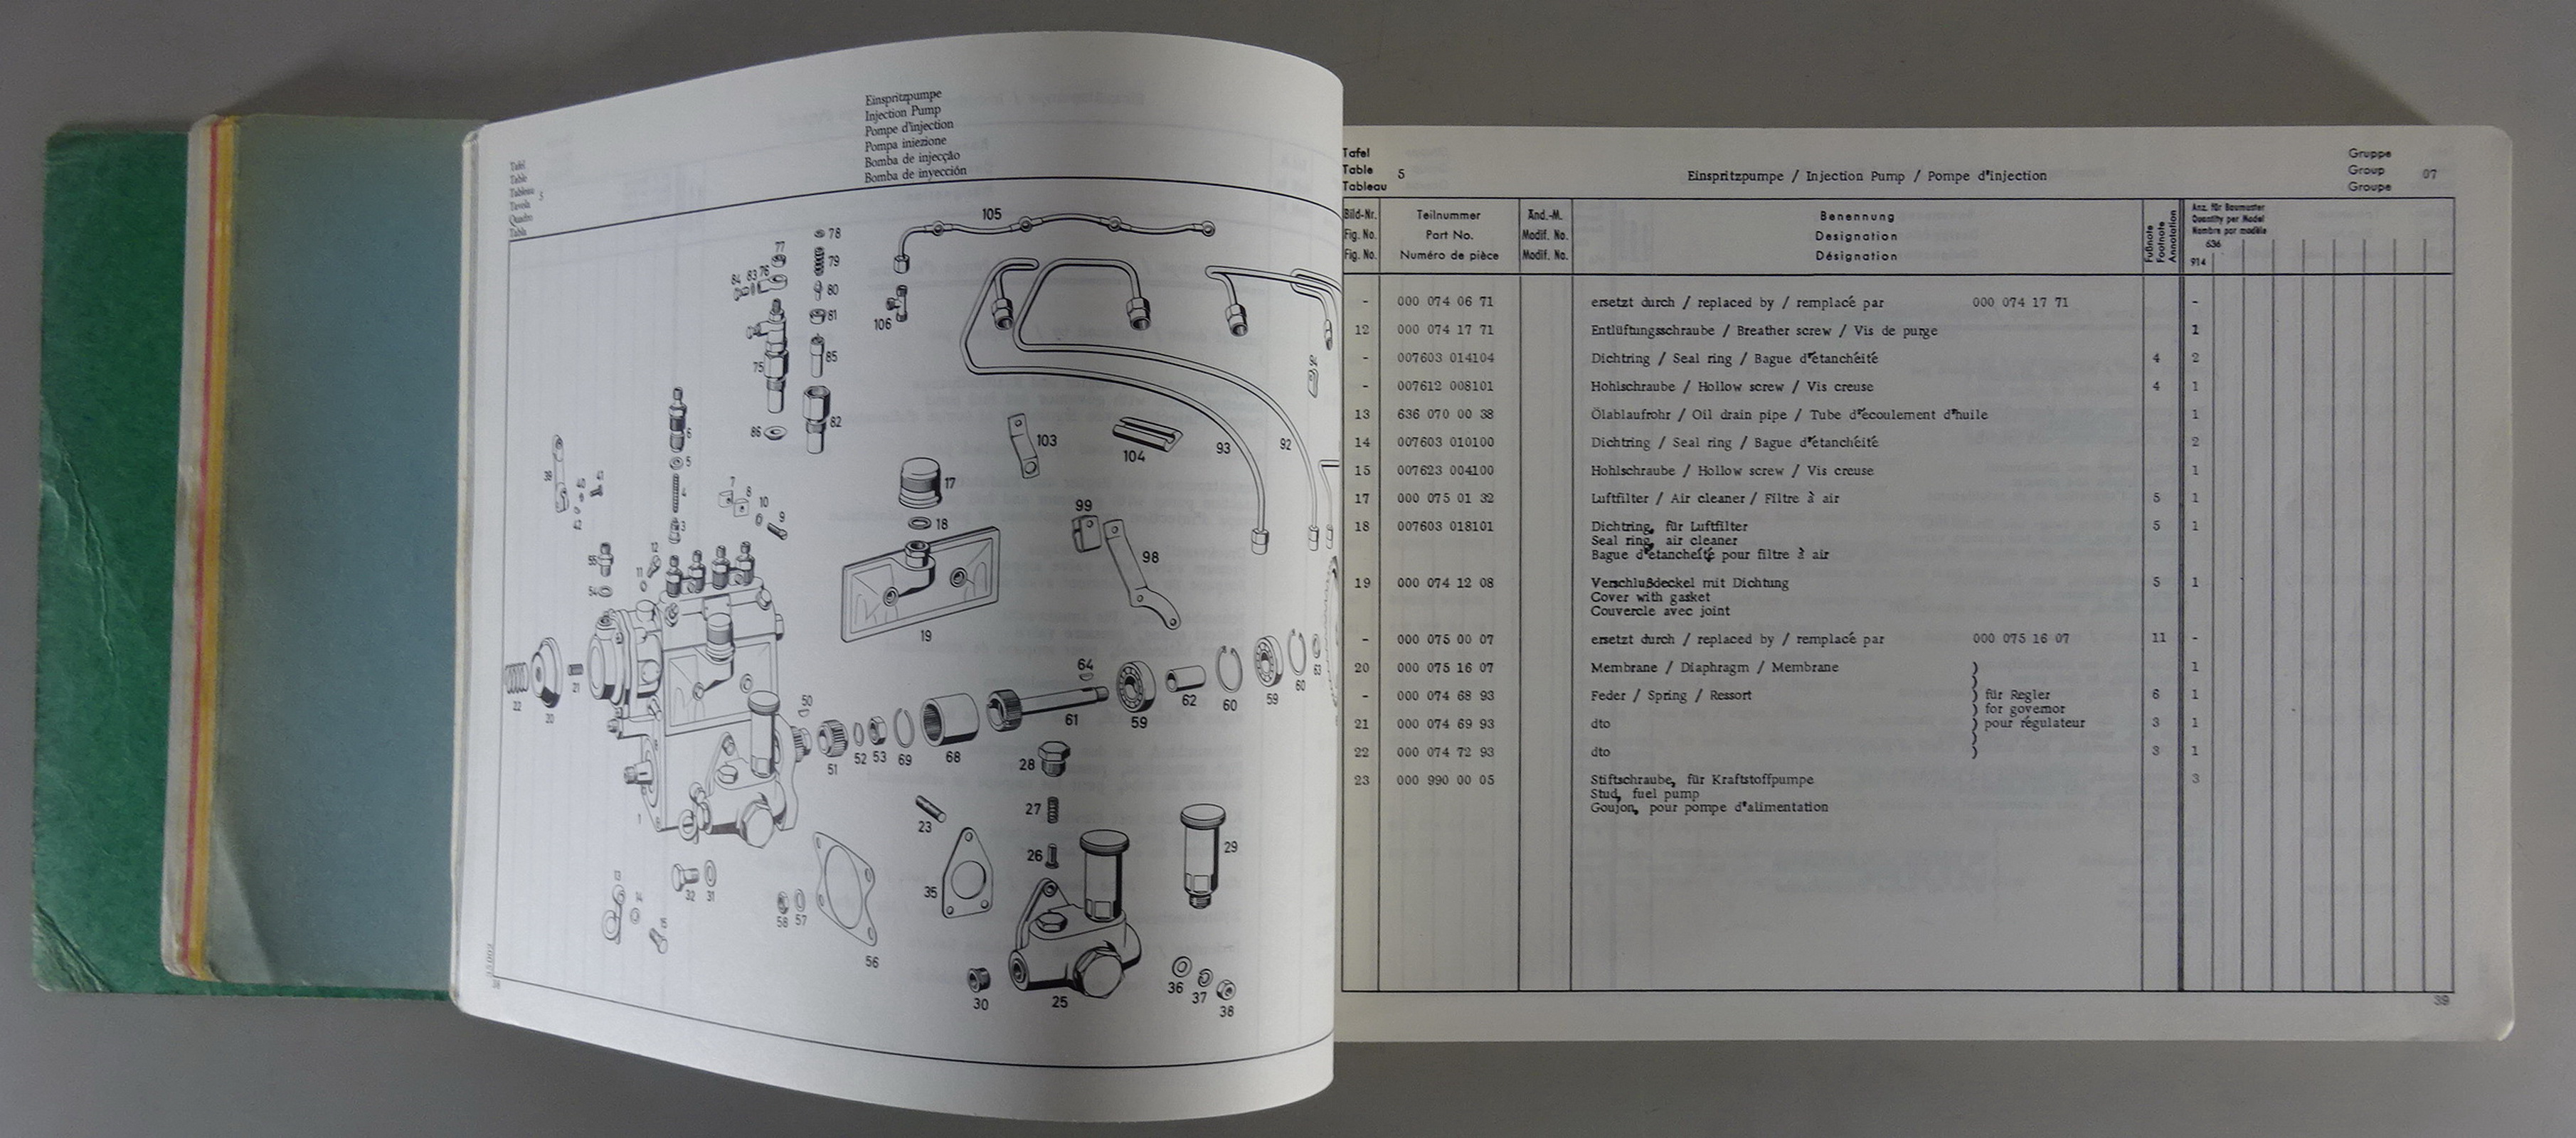 Tafel
Table
Tableau 5
Tavola
Quadro
Tabla
Einspritzpumpe
Injection Pump
Pompe d'injection
Pompa iniezione
Bomba de injecção
Bomba de inyección
105
78
77
79
84 83 76
80
106
81
75
85
86
82
6
5
39
40
41
42
4
3
7
8
10
9
103
104
93
92
17
18
99
98
19
55
54
12
11
22
20
21
50
51
52
53
69
68
64
61
59
62
60
59
60
63
28
27
26
23
35
29
1
32
31
13
14
15
58
57
56
30
25
36
37
38
38
Tafel
Table 5
Tableau
Einspritzpumpe / Injection Pump / Pompe d'injection
Gruppe
Group 07
Groupe
Bild-Nr. Teilnummer Änd.-M. Benennung
Fig. No. Part No. Modif. No. Designation
Fig. No. Numéro de pièce Modif. No. Désignation
Fußnote
Footnote
Annotation
Anz. für Baumuster
Quantity per Model
Nombre par modèle
636
914
- 000 074 06 71 ersetzt durch / replaced by / remplacé par 000 074 17 71 -
12 000 074 17 71 Entlüftungsschraube / Breather screw / Vis de purge 1
- 007603 014104 Dichtring / Seal ring / Bague d'étanchéité 4 2
- 007612 008101 Hohlschraube / Hollow screw / Vis creuse 4 1
13 636 070 00 38 Ölablaufrohr / Oil drain pipe / Tube d'écoulement d'huile 1
14 007603 010100 Dichtring / Seal ring / Bague d'étanchéité 2
15 007623 004100 Hohlschraube / Hollow screw / Vis creuse 1
17 000 075 01 32 Luftfilter / Air cleaner / Filtre à air 5 1
18 007603 018101 Dichtring, für Luftfilter 5 1
Seal ring, air cleaner
Bague d'étanchéité, pour filtre à air
19 000 074 12 08 Verschlußdeckel mit Dichtung 5 1
Cover with gasket
Couvercle avec joint
- 000 075 00 07 ersetzt durch / replaced by / remplacé par 000 075 16 07 11 -
20 000 075 16 07 Membrane / Diaphragm / Membrane ) 1
- 000 074 68 93 Feder / Spring / Ressort ) für Regler 6 1
) for governor
21 000 074 69 93 dto ) pour régulateur 3 1
22 000 074 72 93 dto ) 3 1
23 000 990 00 05 Stiftschraube, für Kraftstoffpumpe 3
Stud, fuel pump
Goujon, pour pompe d'alimentation
39